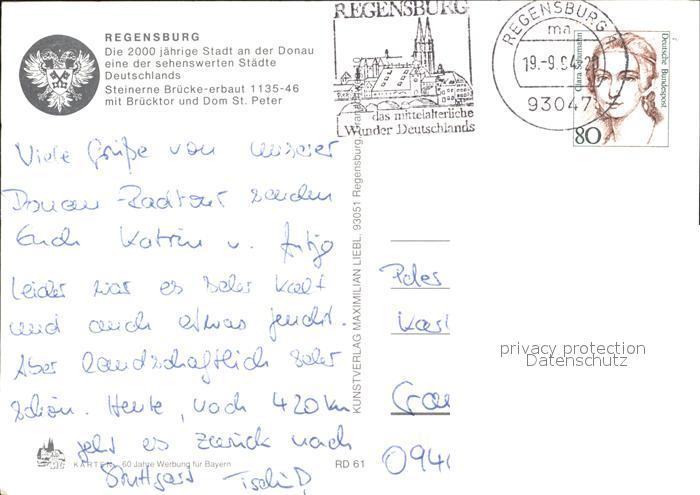 REGENSBURG
Die 2000 jährige Stadt an der Donau
eine der sehenswerten Städte
Deutschlands
Steinerne Brücke-erbaut 1135-46
mit Brücktor und Dom St. Peter
REGENSBURG
das mittelalterliche
Wunder Deutschlands
REGENSBURG
ma
19.-9.94-21
93047
Clara Schumann
Deutsche Bundespost
80
Viele Grüße von unserer
Donau-Radtour senden
Euch Katrin u. Antje
leider war es sehr kalt
und auch etwas feucht.
Aber landschaftlich sehr
schön. Heute, nach 420 km
geht es zurück nach
Stuttgart
KUNSTVERLAG MAXIMILIAN LIEBL, 93051 Regensburg
privacy protection
Datenschutz
KARTEN 60 Jahre Werbung für Bayern
RD 61